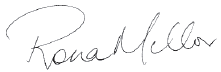 Rona Mellor